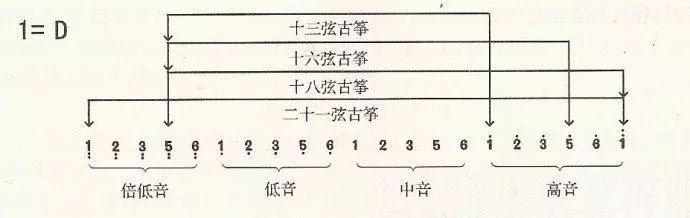 1=D
十三弦古筝
十六弦古筝
十八弦古筝
二十一弦古筝
1 2 3 5 6 1 2 3 5 6 1 2 3 5 6 1 2 3 5 6 1
倍低音 低音 中音 高音